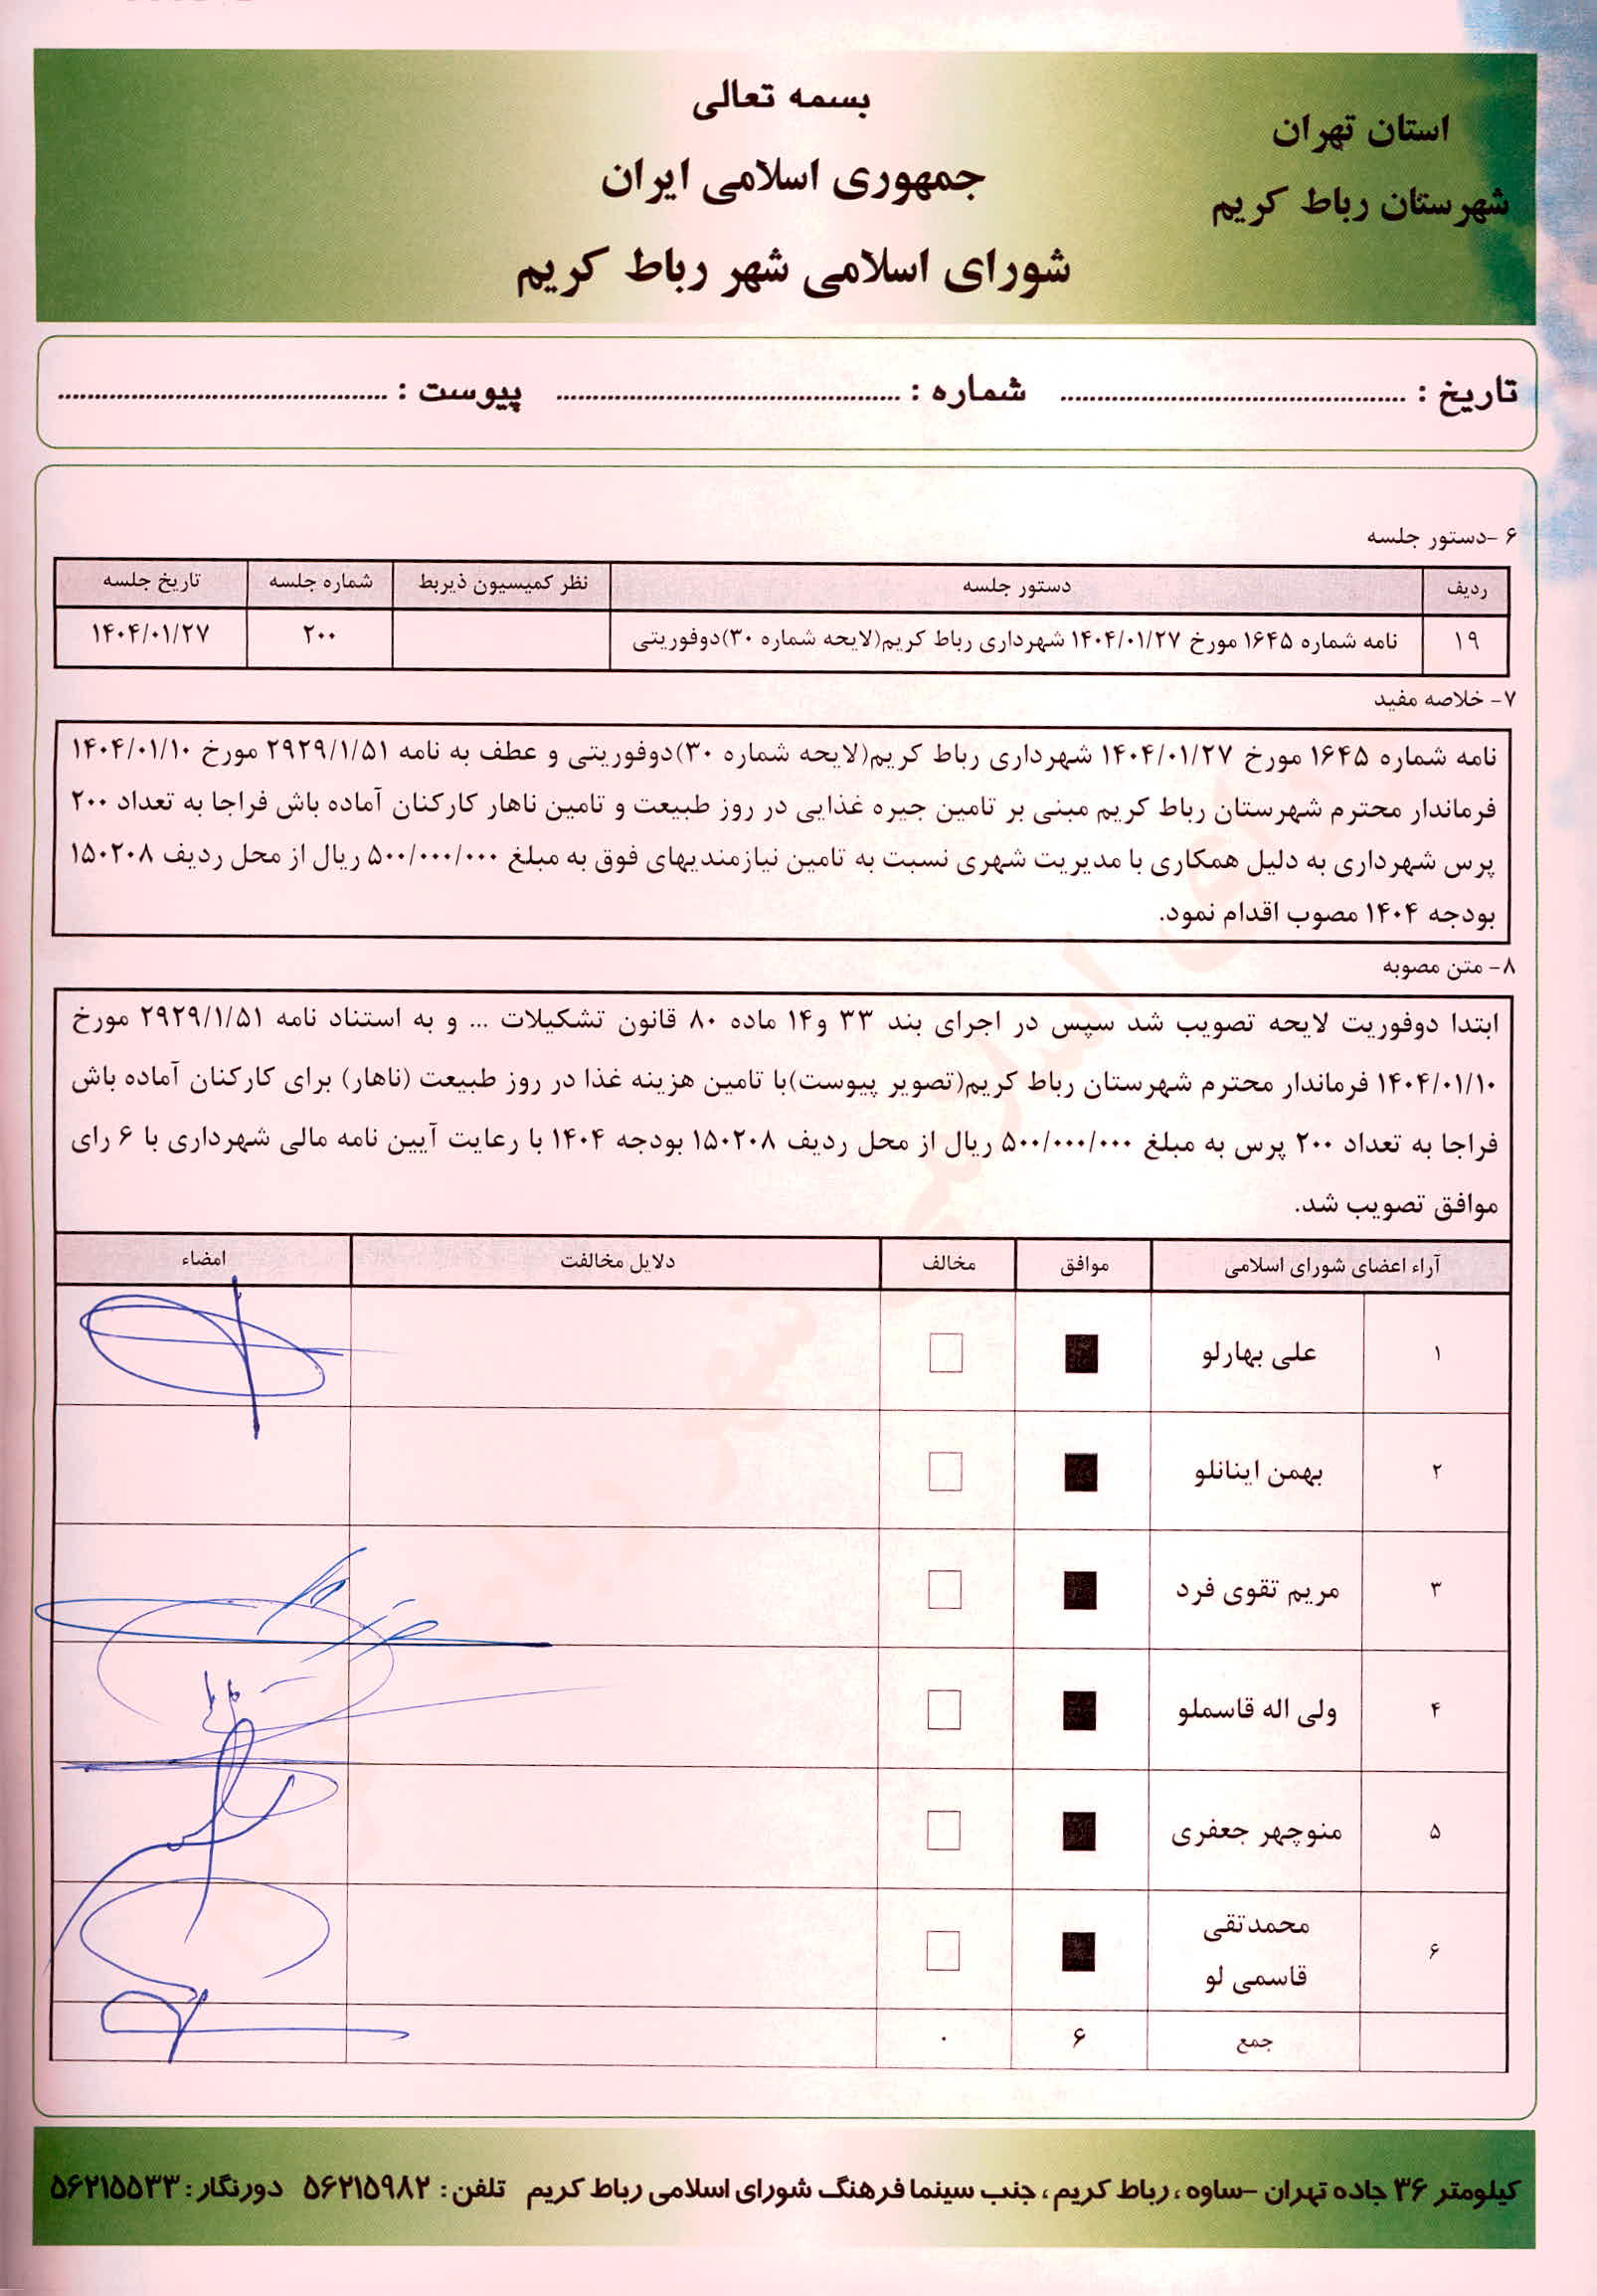 بسمه تعالی
استان تهران
جمهوری اسلامی ایران
شهرستان رباط کریم
شورای اسلامی شهر رباط کریم
تاریخ : شماره : پیوست :
۶ -دستور جلسه
ردیف دستور جلسه نظر کمیسیون ذیربط شماره جلسه تاریخ جلسه
۱۹ نامه شماره ۱۶۴۵ مورخ ۱۴۰۴/۰۱/۲۷ شهرداری رباط کریم(لایحه شماره ۳۰)دوفوریتی ۲۰۰ ۱۴۰۴/۰۱/۲۷
۷- خلاصه مفید
نامه شماره ۱۶۴۵ مورخ ۱۴۰۴/۰۱/۲۷ شهرداری رباط کریم(لایحه شماره ۳۰)دوفوریتی و عطف به نامه ۲۹۲۹/۱/۵۱ مورخ ۱۴۰۴/۰۱/۱۰
فرماندار محترم شهرستان رباط کریم مبنی بر تامین جیره غذایی در روز طبیعت و تامین ناهار کارکنان آماده باش فراجا به تعداد ۲۰۰
پرس شهرداری به دلیل همکاری با مدیریت شهری نسبت به تامین نیازمندیهای فوق به مبلغ ۵۰۰/۰۰۰/۰۰۰ ریال از محل ردیف ۱۵۰۲۰۸
بودجه ۱۴۰۴ مصوب اقدام نمود.
۸- متن مصوبه
ابتدا دوفوریت لایحه تصویب شد سپس در اجرای بند ۳۳ و۱۴ ماده ۸۰ قانون تشکیلات ... و به استناد نامه ۲۹۲۹/۱/۵۱ مورخ
۱۴۰۴/۰۱/۱۰ فرماندار محترم شهرستان رباط کریم(تصویر پیوست)با تامین هزینه غذا در روز طبیعت (ناهار) برای کارکنان آماده باش
فراجا به تعداد ۲۰۰ پرس به مبلغ ۵۰۰/۰۰۰/۰۰۰ ریال از محل ردیف ۱۵۰۲۰۸ بودجه ۱۴۰۴ با رعایت آیین نامه مالی شهرداری با ۶ رای
موافق تصویب شد.
آراء اعضای شورای اسلامی موافق مخالف دلایل مخالفت امضاء
۱ علی بهارلو
۲ بهمن اینانلو
۳ مریم تقوی فرد
۴ ولی اله قاسملو
۵ منوچهر جعفری
۶ محمدتقی
قاسمی لو
جمع ۶ ۰
کیلومتر ۳۶ جاده تهران -ساوه ، رباط کریم ، جنب سینما فرهنگ شورای اسلامی رباط کریم تلفن : ۵۶۲۱۵۹۸۲ دورنگار : ۵۶۲۱۵۵۳۳